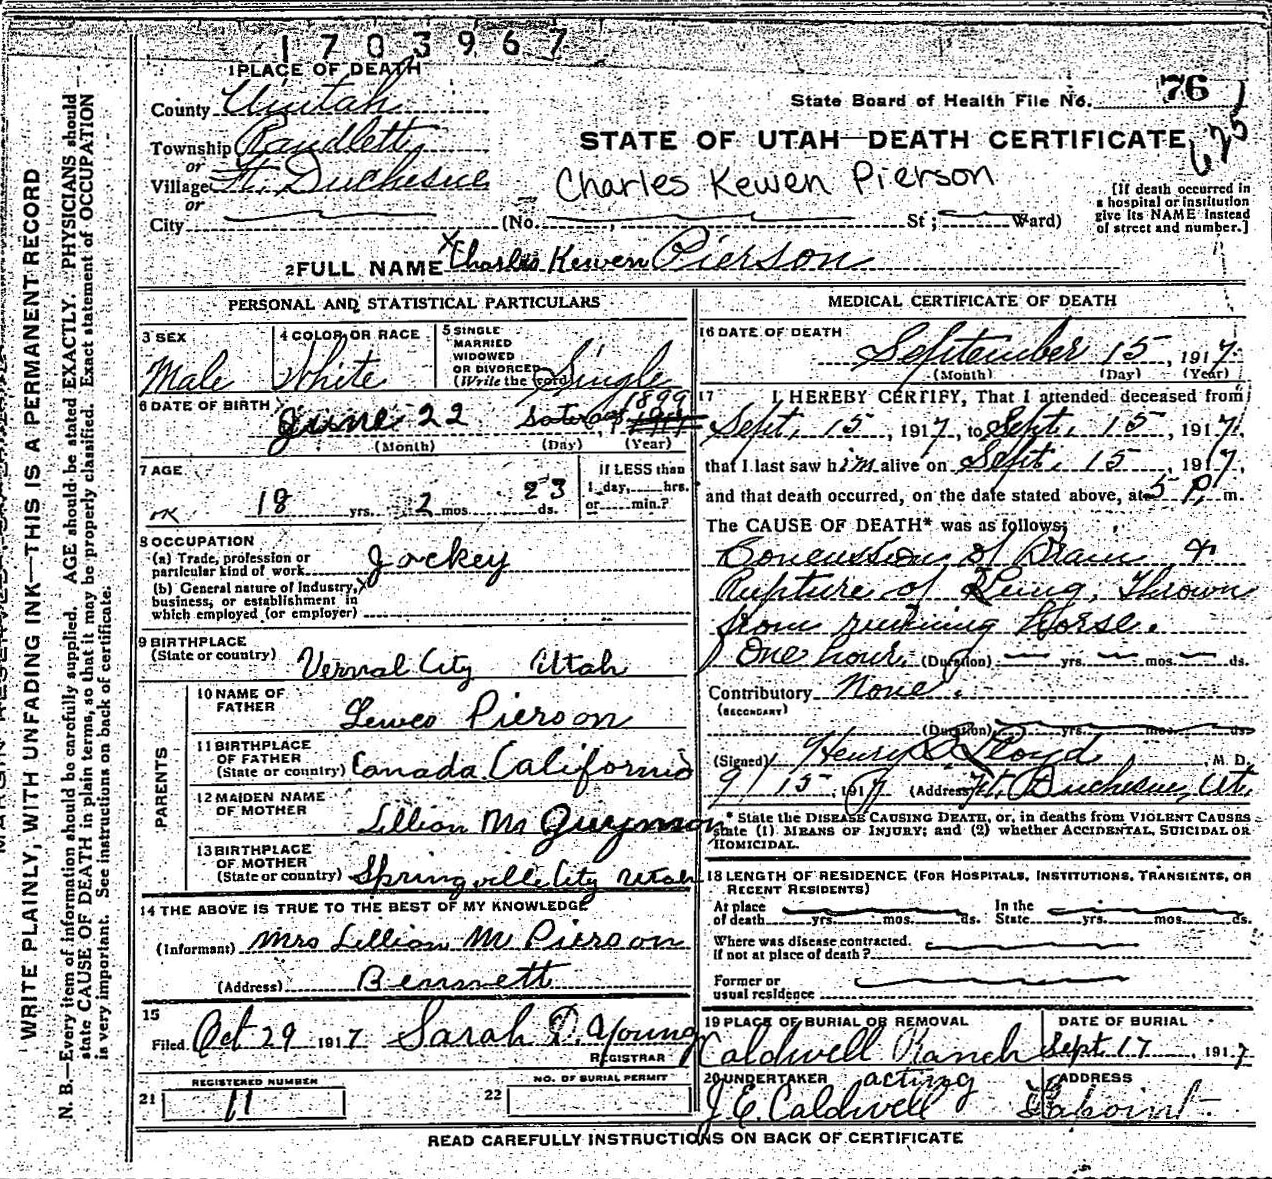 1703967
1 PLACE OF DEATH
County Uintah
State Board of Health File No. 76
Township Randlett
or
STATE OF UTAH—DEATH CERTIFICATE
625
Village Ft. Duchesne
or
Charles Kewen Pierson
[If death occurred in
a hospital or institution
give its NAME instead
of street and number.]
City (No. , St; Ward)
2 FULL NAME Charles Kewen Pierson
PERSONAL AND STATISTICAL PARTICULARS
3 SEX
Male
4 COLOR OR RACE
White
5 SINGLE
MARRIED
WIDOWED
OR DIVORCED
(Write the word)
Single
6 DATE OF BIRTH
June 22 1899
(Month) (Day) (Year)
7 AGE
18 yrs. 2 mos. 23 ds.
If LESS than
1 day, hrs.
or min.?
8 OCCUPATION
(a) Trade, profession or
particular kind of work Jockey
(b) General nature of Industry,
business, or establishment in
which employed (or employer)
9 BIRTHPLACE
(State or country) Vernal City Utah
PARENTS
10 NAME OF
FATHER
Pierson
11 BIRTHPLACE
OF FATHER
(State or country) Canada California
12 MAIDEN NAME
OF MOTHER
Lillian M
13 BIRTHPLACE
OF MOTHER
(State or country) Springville City Utah
14 THE ABOVE IS TRUE TO THE BEST OF MY KNOWLEDGE
(Informant) Mrs Lillian M Pierson
(Address) Bennett
15
Filed Oct 29 1917 Sarah D. Young
REGISTRAR
REGISTERED NUMBER
21 11
NO. OF BURIAL PERMIT
22
MEDICAL CERTIFICATE OF DEATH
16 DATE OF DEATH
September 15, 1917
(Month) (Day) (Year)
17 I HEREBY CERTIFY, That I attended deceased from
Sept. 15, 1917, to Sept. 15, 1917,
that I last saw him alive on Sept. 15, 1917,
and that death occurred, on the date stated above, at 5 P. m.
The CAUSE OF DEATH* was as follows:
Concussion of Brain &
Rupture of Lung, Thrown
from running Horse.
One hour. (Duration) yrs. mos. ds.
Contributory None.
(SECONDARY)
(Duration) yrs. mos. ds.
(Signed) Henry Lloyd, M.D.
9/15, 1917 (Address) Ft. Duchesne, Ut.
* State the DISEASE CAUSING DEATH, or, in deaths from VIOLENT CAUSES
state (1) MEANS OF INJURY; and (2) whether ACCIDENTAL, SUICIDAL OR
HOMICIDAL.
18 LENGTH OF RESIDENCE (FOR HOSPITALS, INSTITUTIONS, TRANSIENTS, OR
RECENT RESIDENTS)
At place
of death yrs. mos. ds.
In the
State yrs. mos. ds.
Where was disease contracted.
if not at place of death?
Former or
usual residence
19 PLACE OF BURIAL OR REMOVAL
Caldwell Ranch
DATE OF BURIAL
Sept. 17, 1917
20 UNDERTAKER acting
J. E. Caldwell
ADDRESS
Lapoint.
READ CAREFULLY INSTRUCTIONS ON BACK OF CERTIFICATE
WRITE PLAINLY, WITH UNFADING INK—THIS IS A PERMANENT RECORD
N. B.—Every item of information should be carefully supplied. AGE should be stated EXACTLY. PHYSICIANS should
state CAUSE OF DEATH in plain terms, so that it may be properly classified. Exact statement of OCCUPATION
is very important. See instructions on back of certificate.